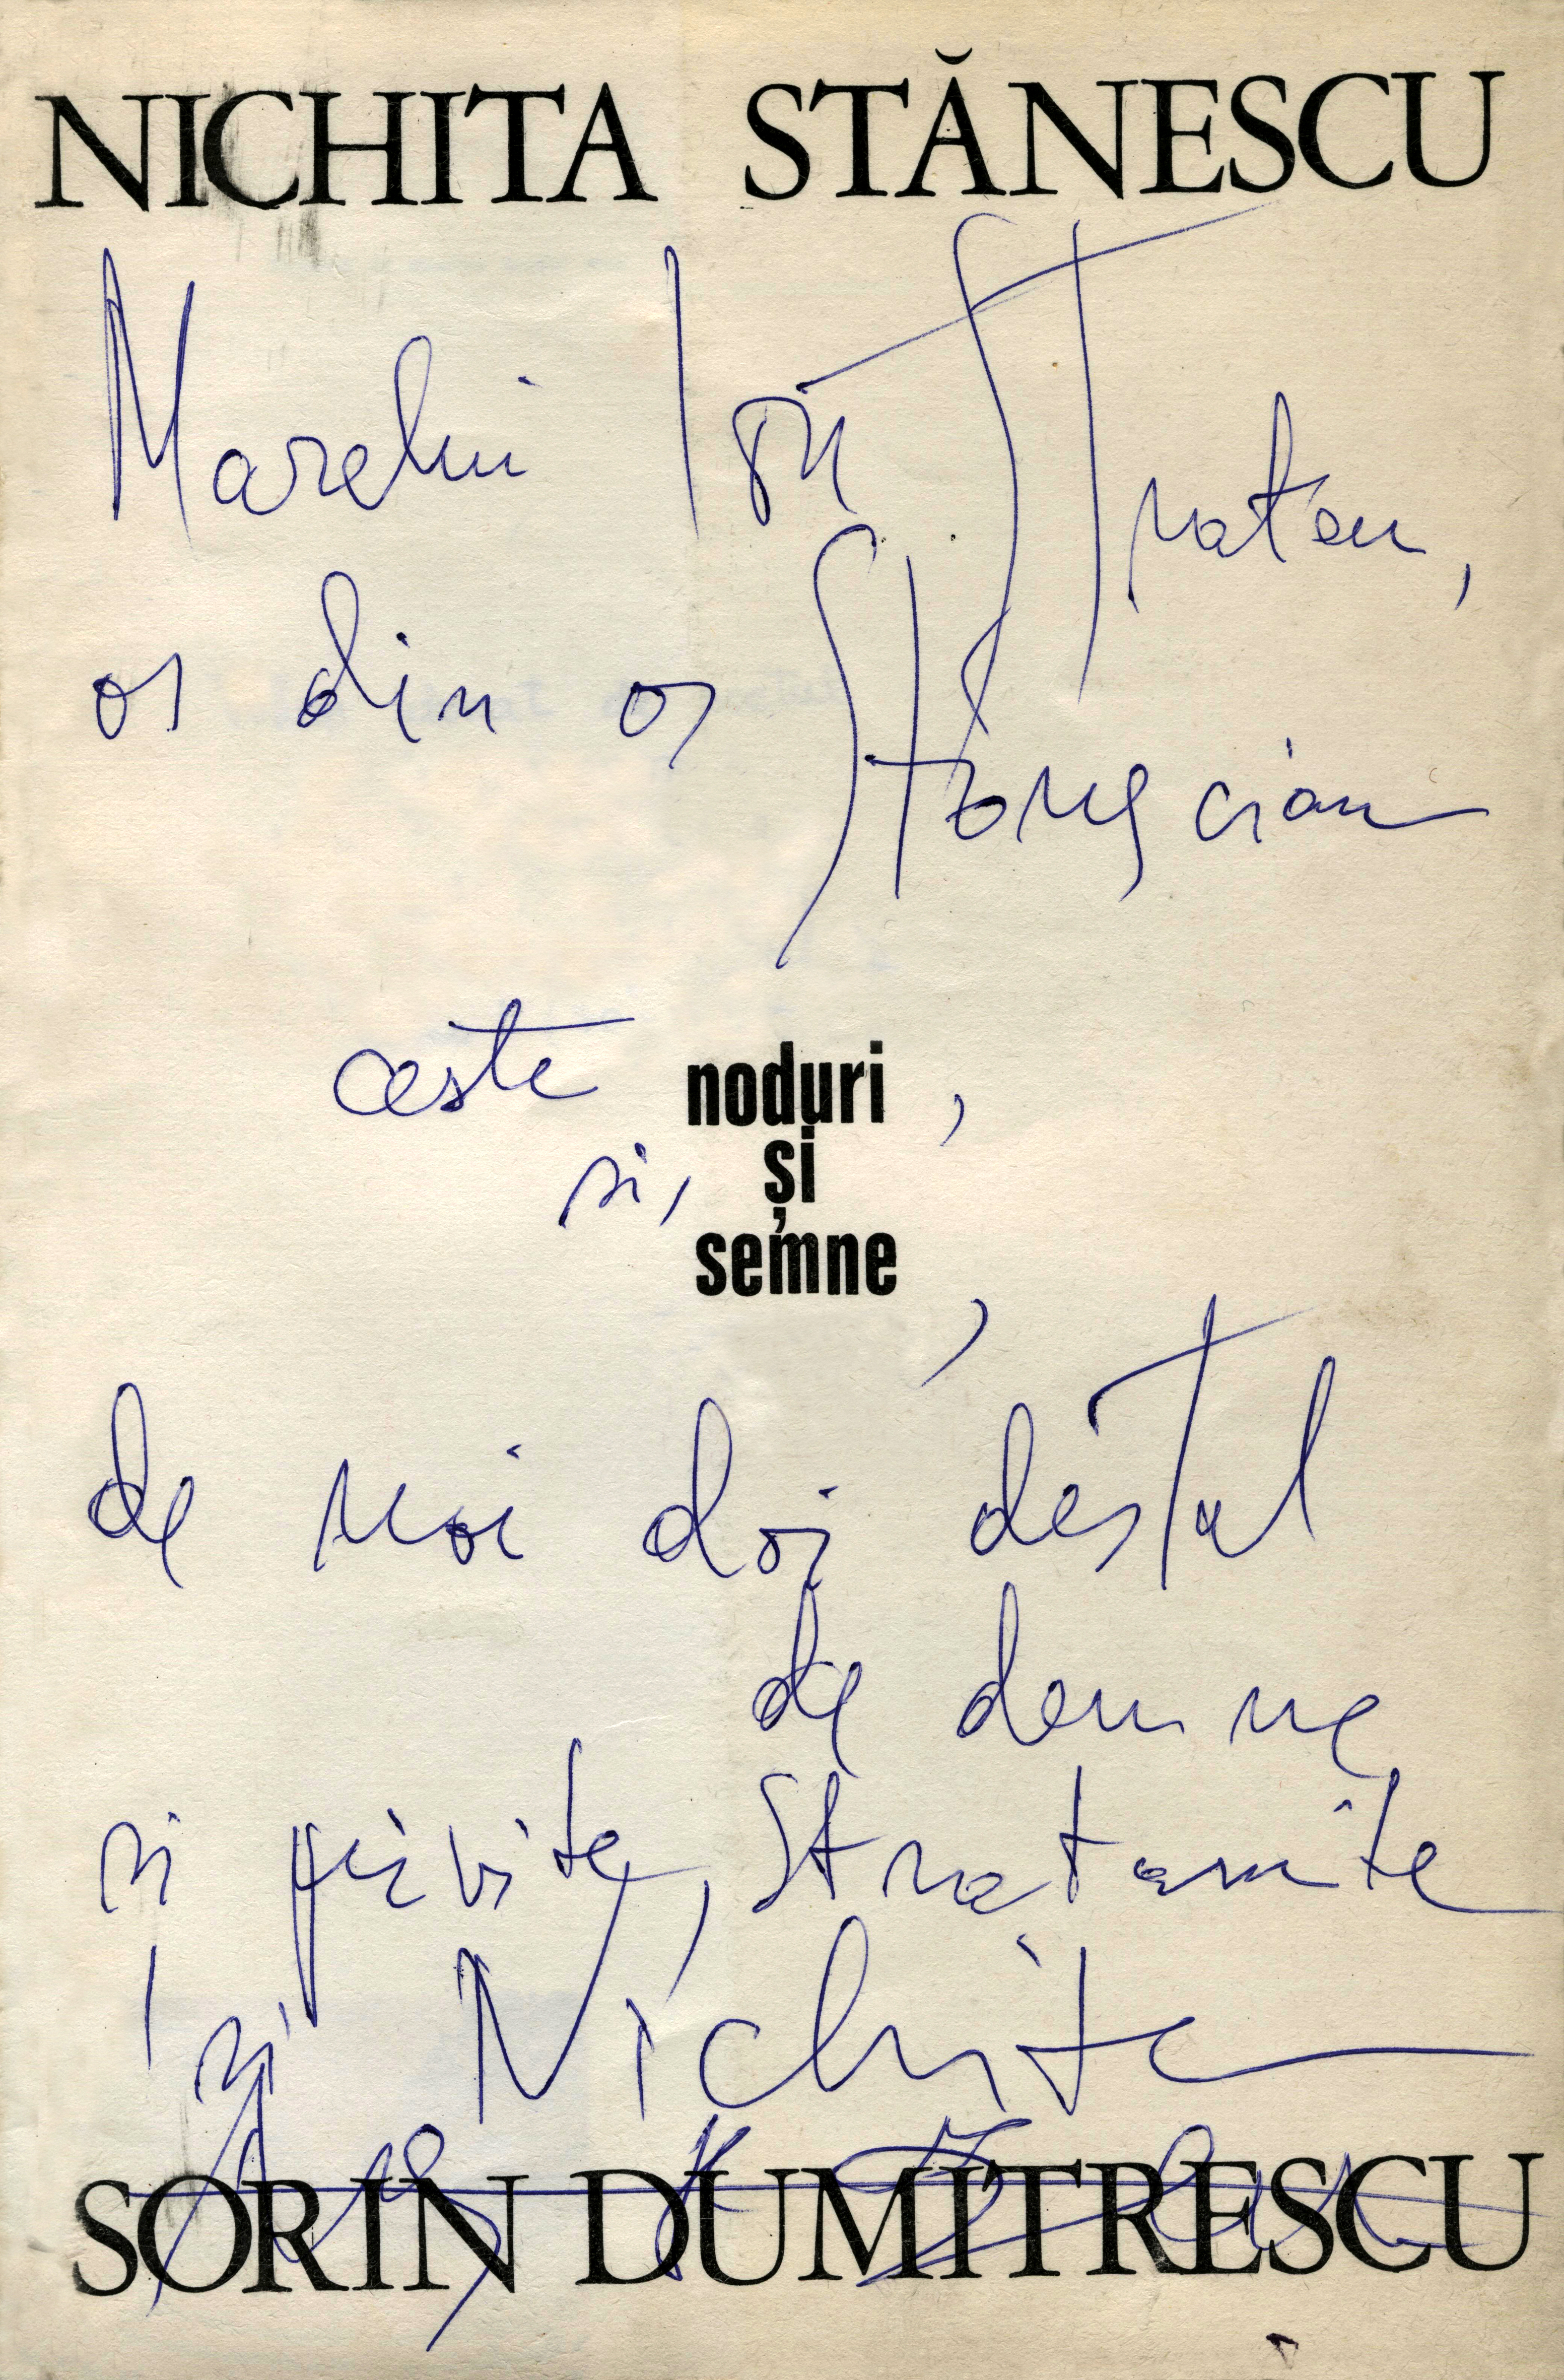 NICHITA STĂNESCU
Marelui Ion Stratan,
os din os
ceste noduri ,
si, și
semne ,
de noi doi destul
de demne
si privite, Stratamite
si Nichita
SORIN DUMITRESCU